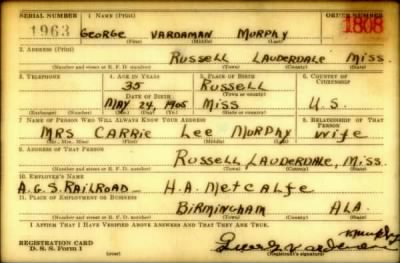 SERIAL NUMBER 1. NAME (Print) ORDER NUMBER
1963 GEORGE VARDAMAN MURPHY 1808
(First) (Middle) (Last)
2. ADDRESS (Print)
RUSSELL LAUDERDALE MISS.
(Number and street or R. F. D. number) (Town) (County) (State)
3. TELEPHONE 4. AGE IN YEARS 5. PLACE OF BIRTH 6. COUNTRY OF CITIZENSHIP
35 RUSSELL
DATE OF BIRTH (Town or county)
MAY 24, 1905 MISS U.S.
(Exchange) (Number) (Mo.) (Day) (Yr.) (State or country)
7. NAME OF PERSON WHO WILL ALWAYS KNOW YOUR ADDRESS 8. RELATIONSHIP OF THAT PERSON
MRS CARRIE LEE MURPHY Wife
(Mr., Mrs., Miss) (First) (Middle) (Last)
9. ADDRESS OF THAT PERSON
RUSSELL, LAUDERDALE, MISS.
(Number and street or R. F. D. number) (Town) (County) (State)
10. EMPLOYER'S NAME
A.G.S. RAILROAD — H.A. METCALFE
11. PLACE OF EMPLOYMENT OR BUSINESS
BIRMINGHAM ALA.
(Number and street or R. F. D. number) (Town) (County) (State)
I AFFIRM THAT I HAVE VERIFIED ABOVE ANSWERS AND THAT THEY ARE TRUE.
Murphy
REGISTRATION CARD George Vardaman
D. S. S. Form 1 (Registrant's signature)